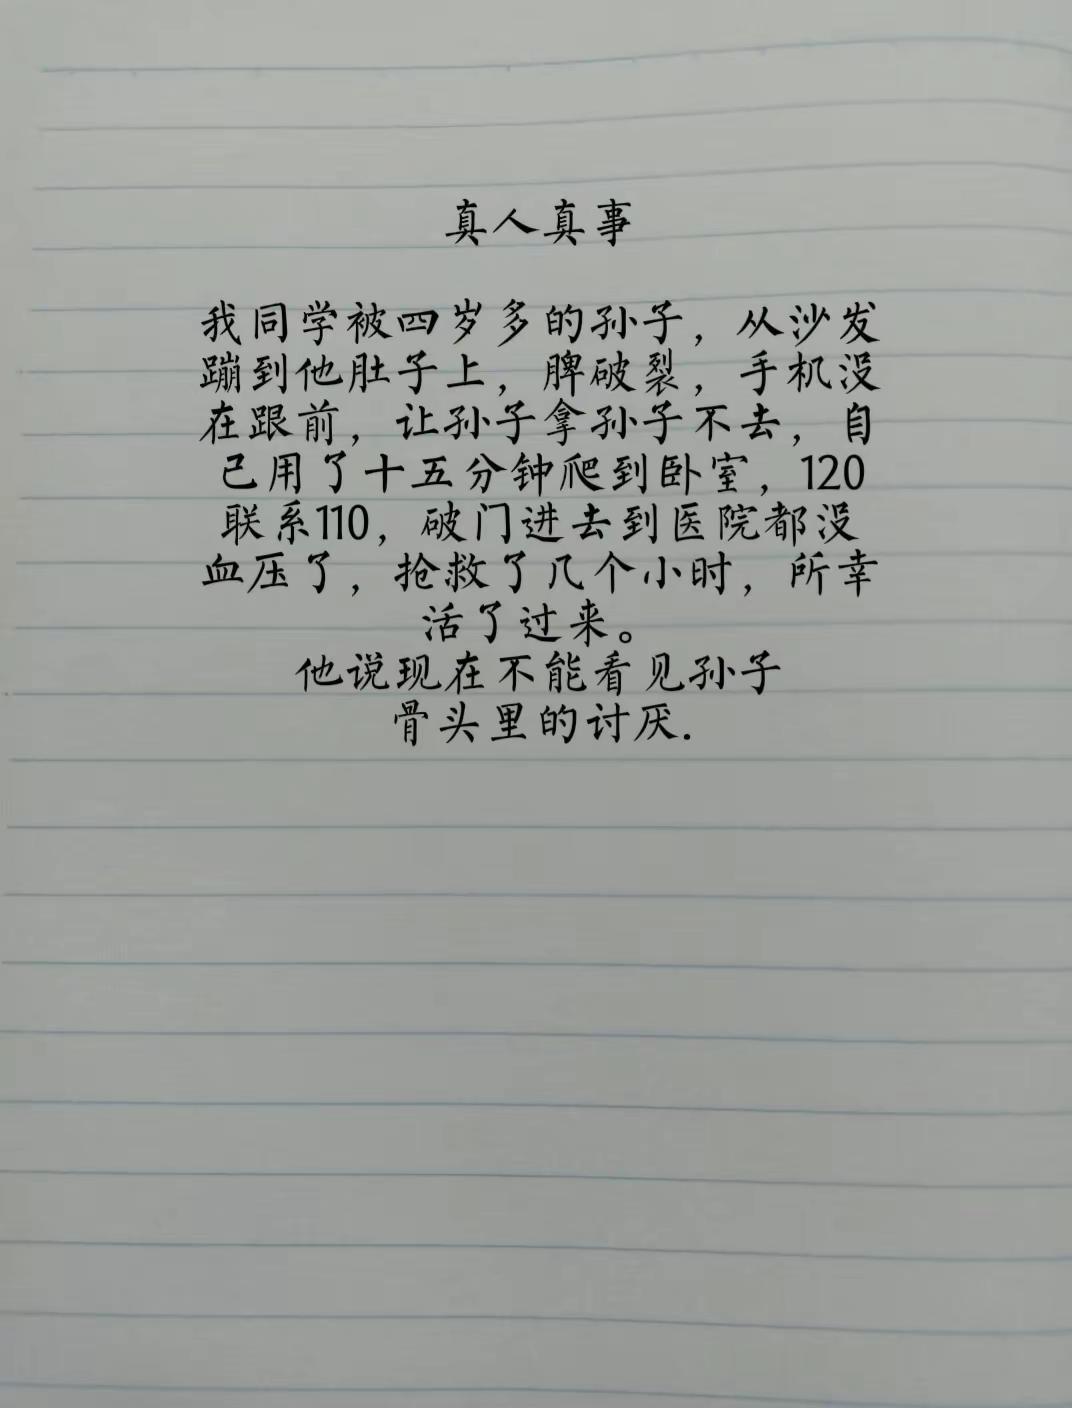 真人真事
我同学被四岁多的孙子，从沙发
蹦到他肚子上，脾破裂，手机没
在跟前，让孙子拿孙子不去，自
己用了十五分钟爬到卧室，120
联系110，破门进去到医院都没
血压了，抢救了几个小时，所幸
活了过来。
他说现在不能看见孙子
骨头里的讨厌.